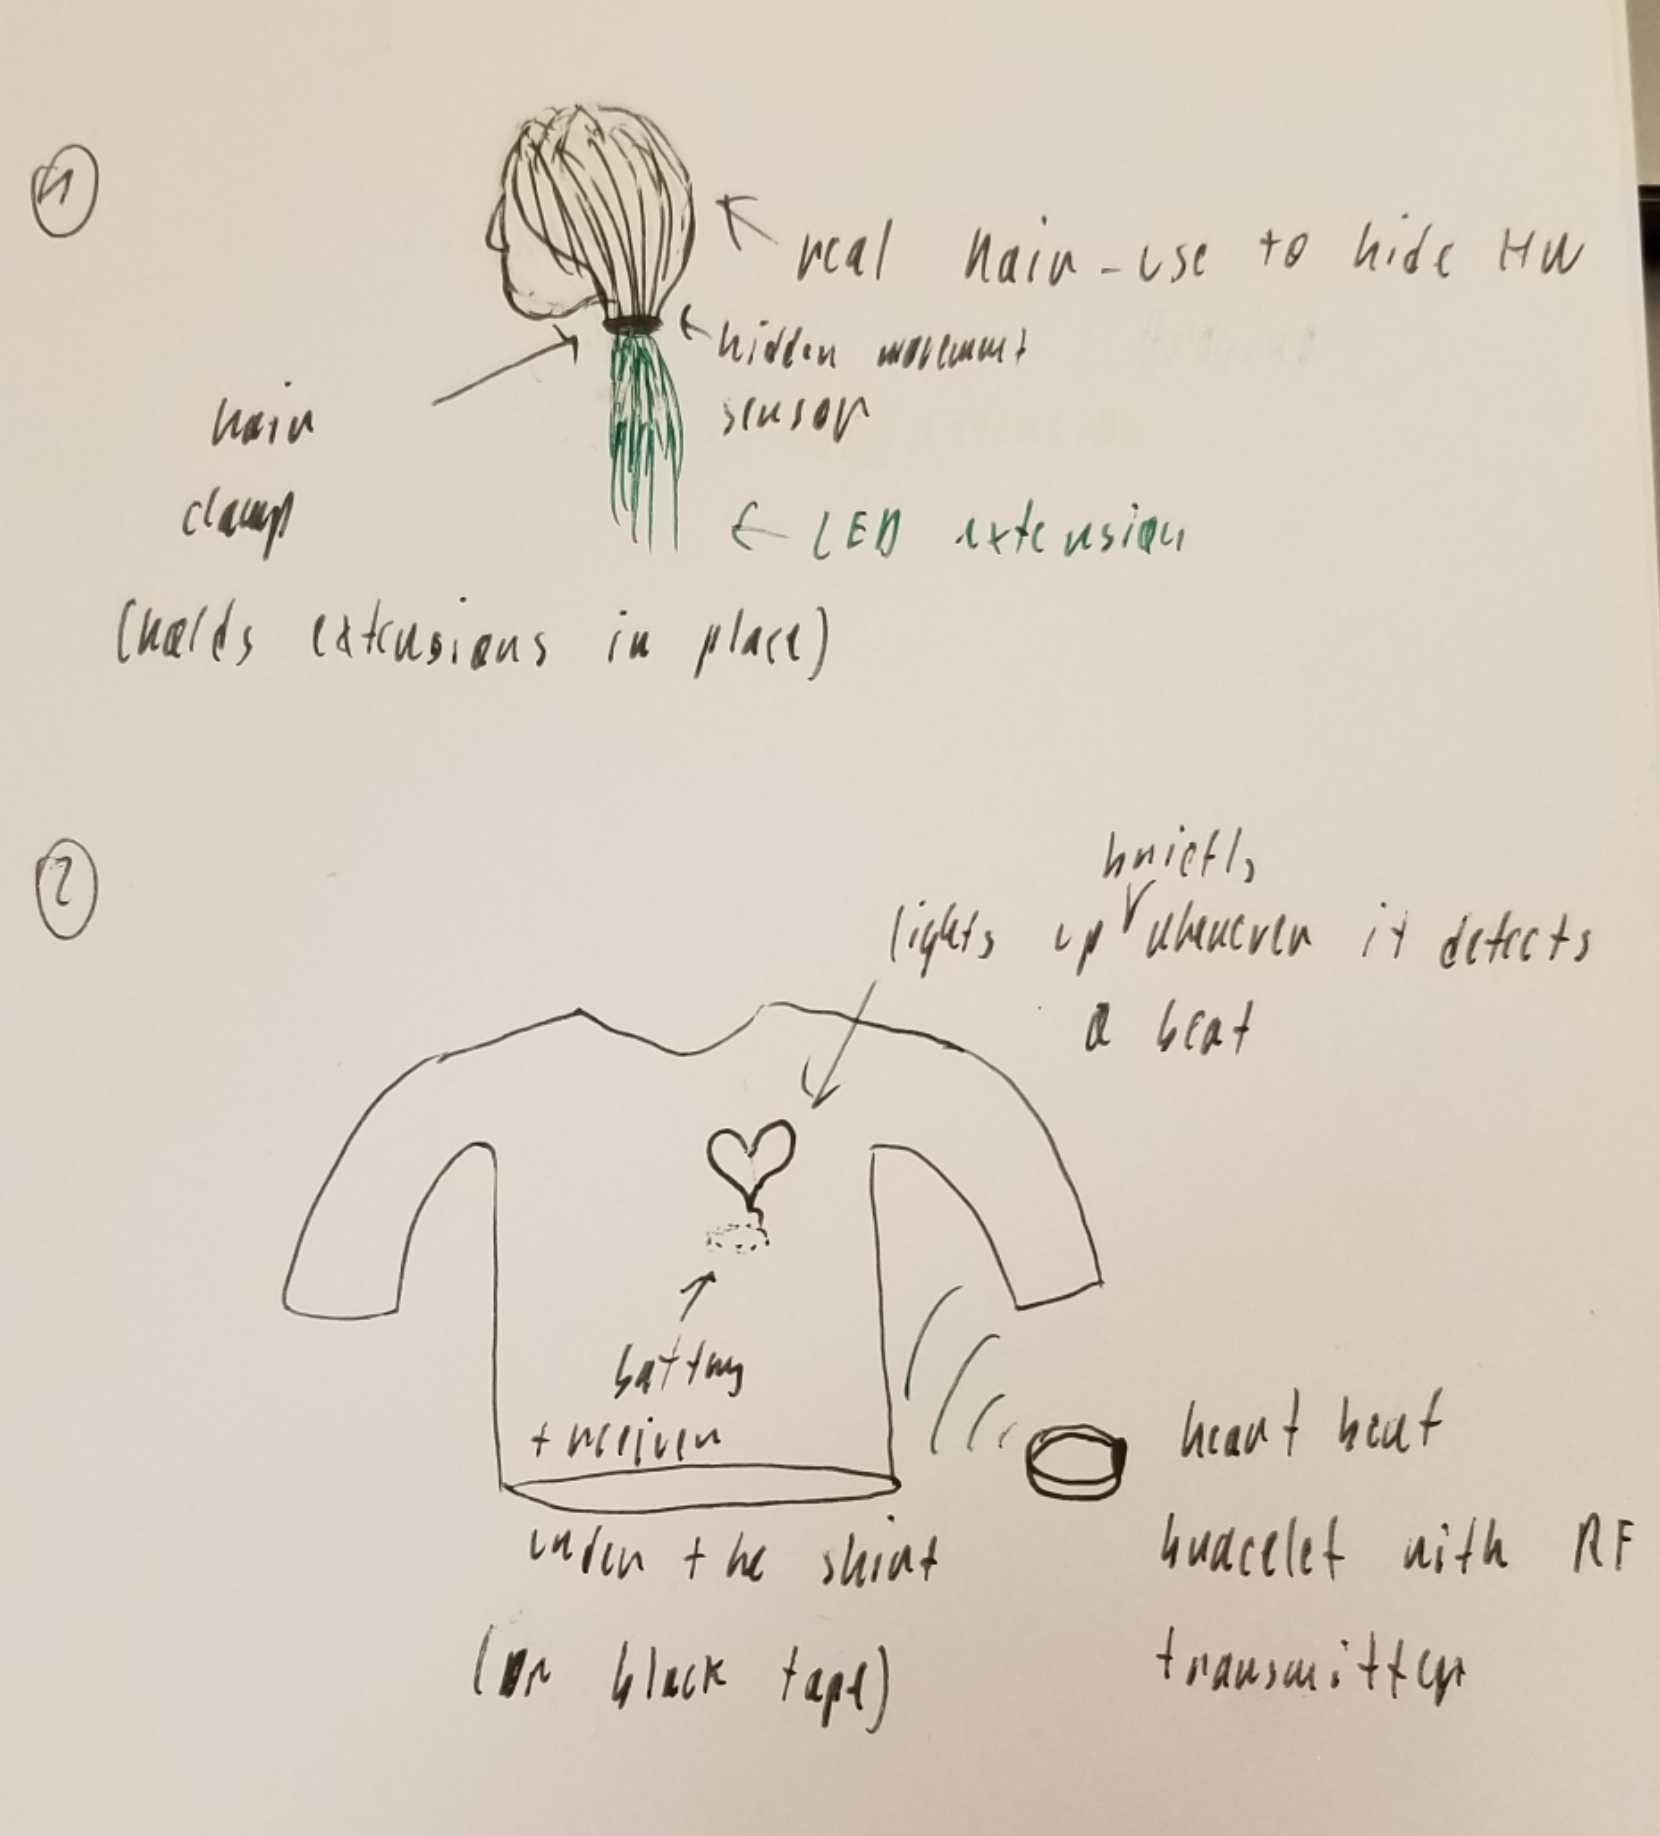 1
real hair - use to hide HW
hidden movement
sensor
hair
clamp
(holds extensions in place)
← LED extension
2
briefly
lights up whenever it detects
a beat
battery
+ receiver
under the shirt
(or black tape)
heart beat
bracelet with RF
transmitter